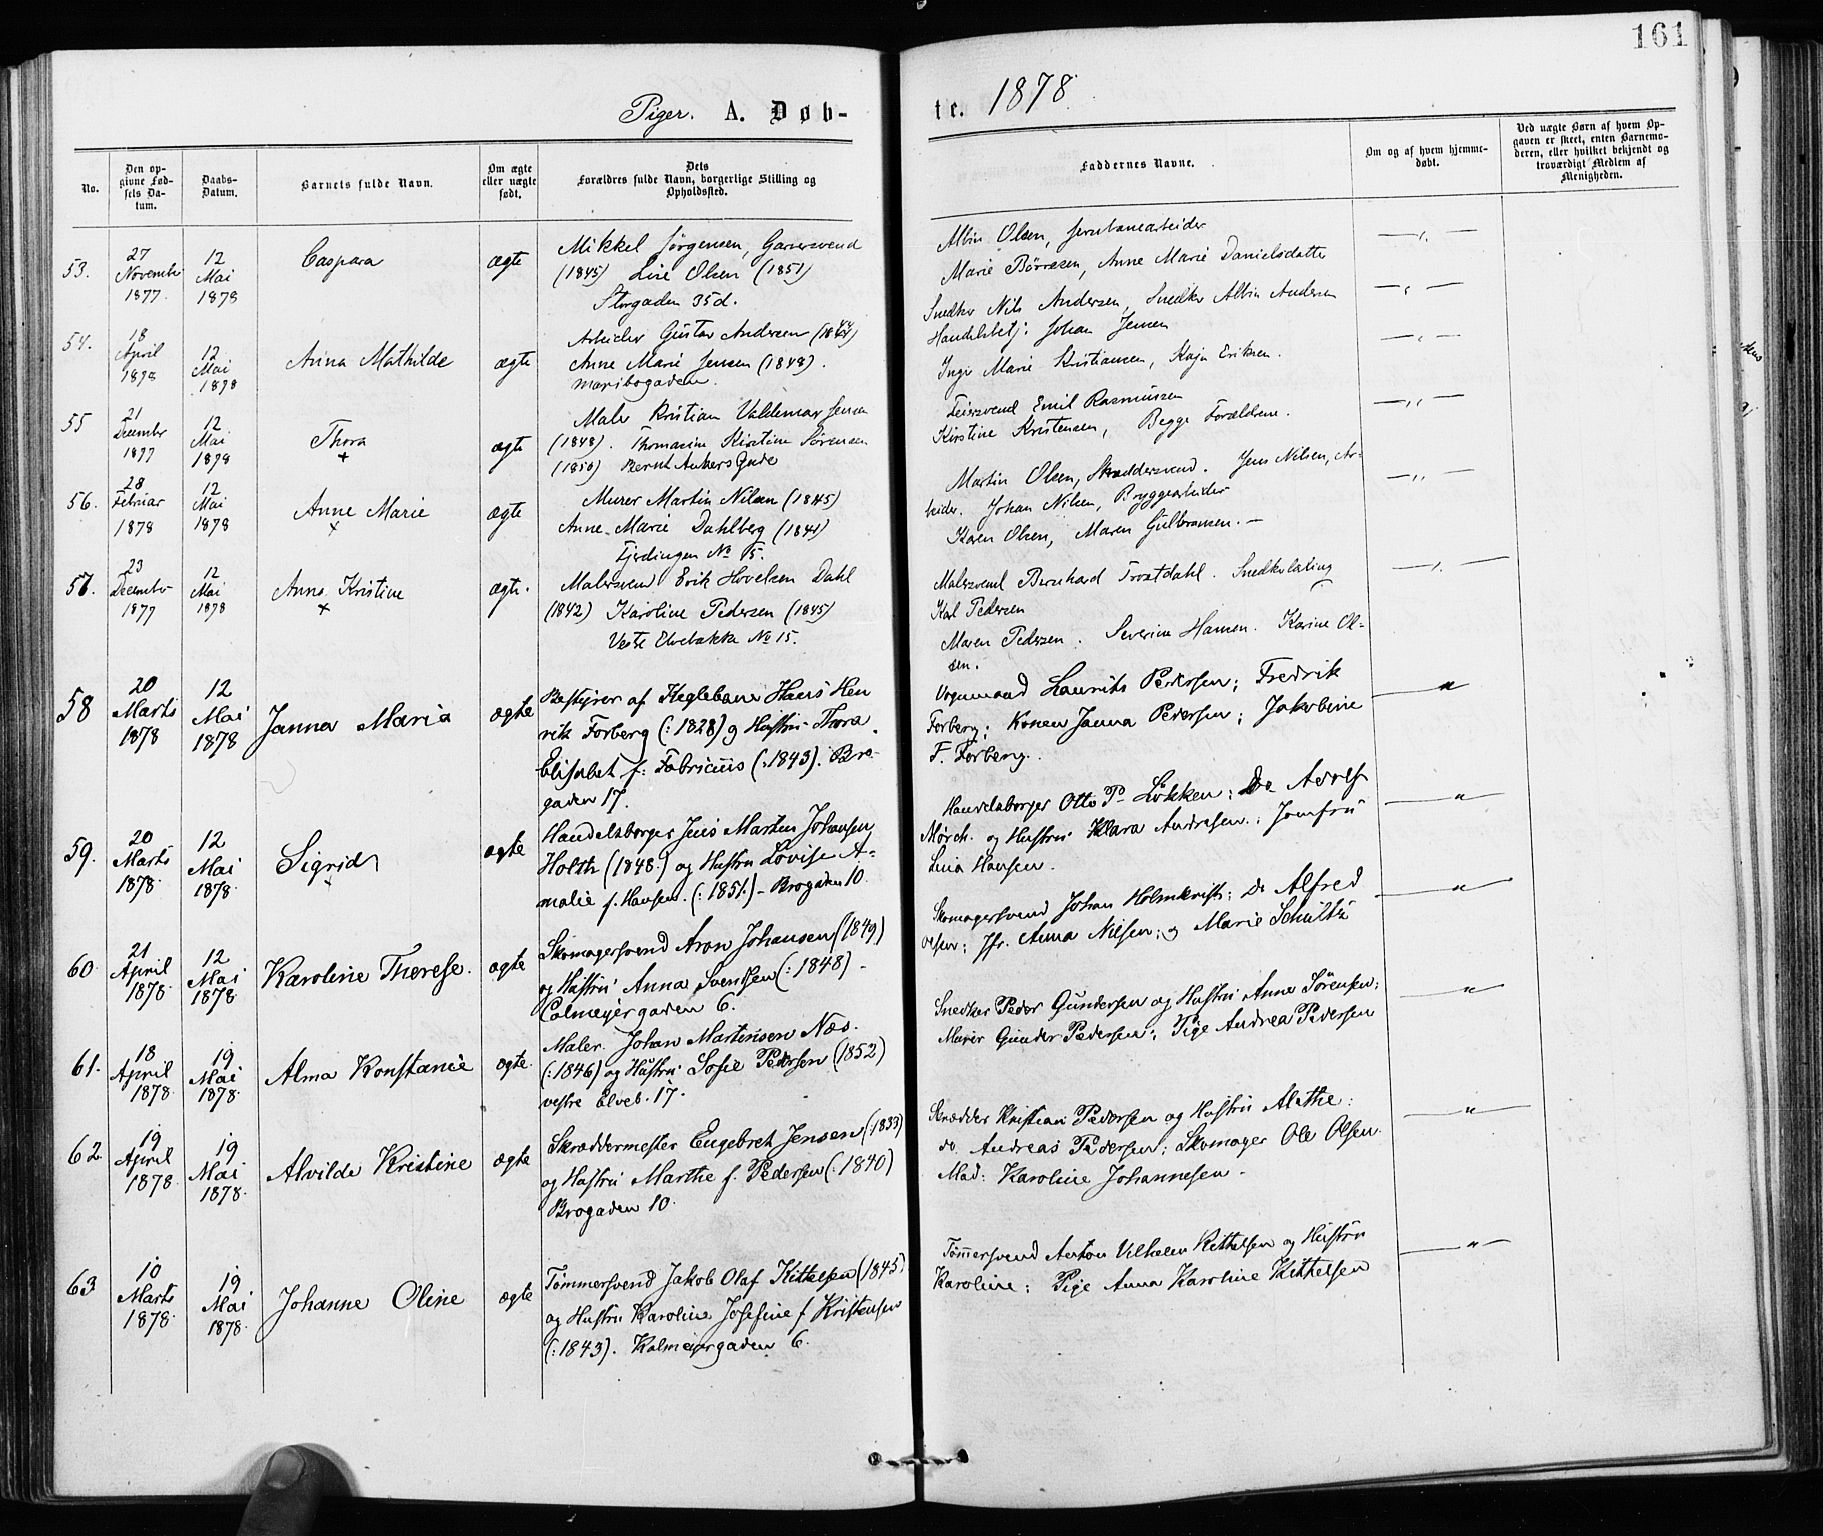 161
Piger. A. Døb-
te. 1878.
No.
Den opgivne Fødsels Datum.
Daabs-Datum.
Barnets fulde Navn.
Om ægte eller uægte født.
Dets Forældres fulde Navn, borgerlige Stilling og Opholdssted.
Faddernes Navne.
Om og af hvem hjemmedøbt.
Ved uægte Børn af hvem Opgaven er skeet, enten Barnemoderen, eller hvilket bekjendt og troværdigt Medlem af Menigheden.
53.
27 November 1877.
12 Mai 1878
Caspara
ægte
Mikkel Jørgensen, Garversvend
(1845) Lise Olsen (1851)
Storgaden 35d.
Albin Olsen, Jernbanearbeider
Marie Børresen, Anne Marie Danielsdatter
54.
18 April 1878
12 Mai 1878
Anna Mathilde
ægte
Arbeider Gustav Andersen
Anne Marie Jensen (1848).
Maribogaden.
Snedker Nils Andersen, Snedker Albin Andersen
Handelsbetj: Johan Jensen
Inge Marie Kristiansen, Kaja Eriksen.
55
21 December 1877
12 Mai 1878
Thora
+
ægte
Maler Kristian Valdemar Jensen
(1848). Thomasine Kirstine Sørensen
(1850) Bernt Ankers Gade
Feiersvend Emil Rasmussen
Kirstine Kristensen, Begge Forældrene.
56.
28 Februar 1878
12 Mai 1878
Anne Marie
+
ægte
Murer Martin Nilsen (1845)
Anne Marie Dahlberg (1841)
Fjerdingen No 15.
Martin Olsen, Skræddersvend. Jens Nilsen, Ar-
beider. Johan Nilsen, Bryggearbeider
Karen Olsen, Maren Gulbransen. —
57.
23 December 1877
12 Mai 1878
Anna Kristine
+
ægte.
Malersvend Erik Hovelsen Dahl
(1842) Karoline Pedersen (1845)
Vestre Elvebakke No 15.
Malersvend Bernhard Trostdahl. Snedkerlærling
Karl Pedersen
Maren Pedersen. Severine Hansen. Karine Ol-
sen.
58
20 Marts 1878
12 Mai 1878
Janna Maria
ægte
Bestyrer af Keglebane Hans Hen
rik Forberg (:1828) og Hustru Thora
Elisabet f: Fabricius (:1843). Bro-
gaden 17.
Vognmand Laurits Pedersen; Fredrik
Forberg; Konen Janna Pedersen; Jakobine
F. Forberg.
59.
20 Marts 1878.
12 Mai 1878.
Sigrid
+
ægte
Handelsborger Jens Martin Johansen
Holth (1848.) og Hustru Lovise A-
malie f. Hansen. (:1851.) - Brogaden 10.
Handelsborger Otto P. Løkken; Do Adolf
Mørch. og Hustru Klara Andresen.; Jomfru
Lina Hansen.
60.
21 April 1878.
12 Mai 1878.
Karoline Therese.
ægte
Skomagersvend Aron Johansen (1849)
og Hustru Anna Svendsen (:1848) -
Calmeyergaden 6.
Skomagersvend Johan Holmkvist; Do Alfred
Olsen; Jfr. Anna Nilsen; og Marie Schultz
61.
18 April 1878.
19 Mai 1878.
Alma Konstance
ægte.
Maler. Johan Martinsen Næs.
(:1846) og Hustru Sofie Pedersen (1852)
vestre Elveb. 17.
Snedker Peder Gundersen og Hustru Anne Sørensen;
Murer Gunder Pedersen; Pige Andrea Pedersen
62.
19 April 1878.
19 Mai 1878.
Alvilde Kristine
ægte
Skræddermester Engebret Jensen (:1833)
og Hustru Marthe f. Pedersen (:1840)
Brogaden 10.
Skrædder Kristian Pedersen og Hustru Alethe:
do Andreas Pedersen; Skomager Ole Olsen
Mad: Karoline Johannesen.
63
10 Marts 1878.
19 Mai 1878.
Johanne Oline
ægte
Tømmersvend Jakob Olaf Kittelsen (1845)
og Hustru Karoline Josefine f Kristensen
(:1843). Kalmeyergaden 6.
Tømmersvend Anton Vilhelm Kittelsen og Hustru
Karoline; Pige Anna Karoline Kittelsen